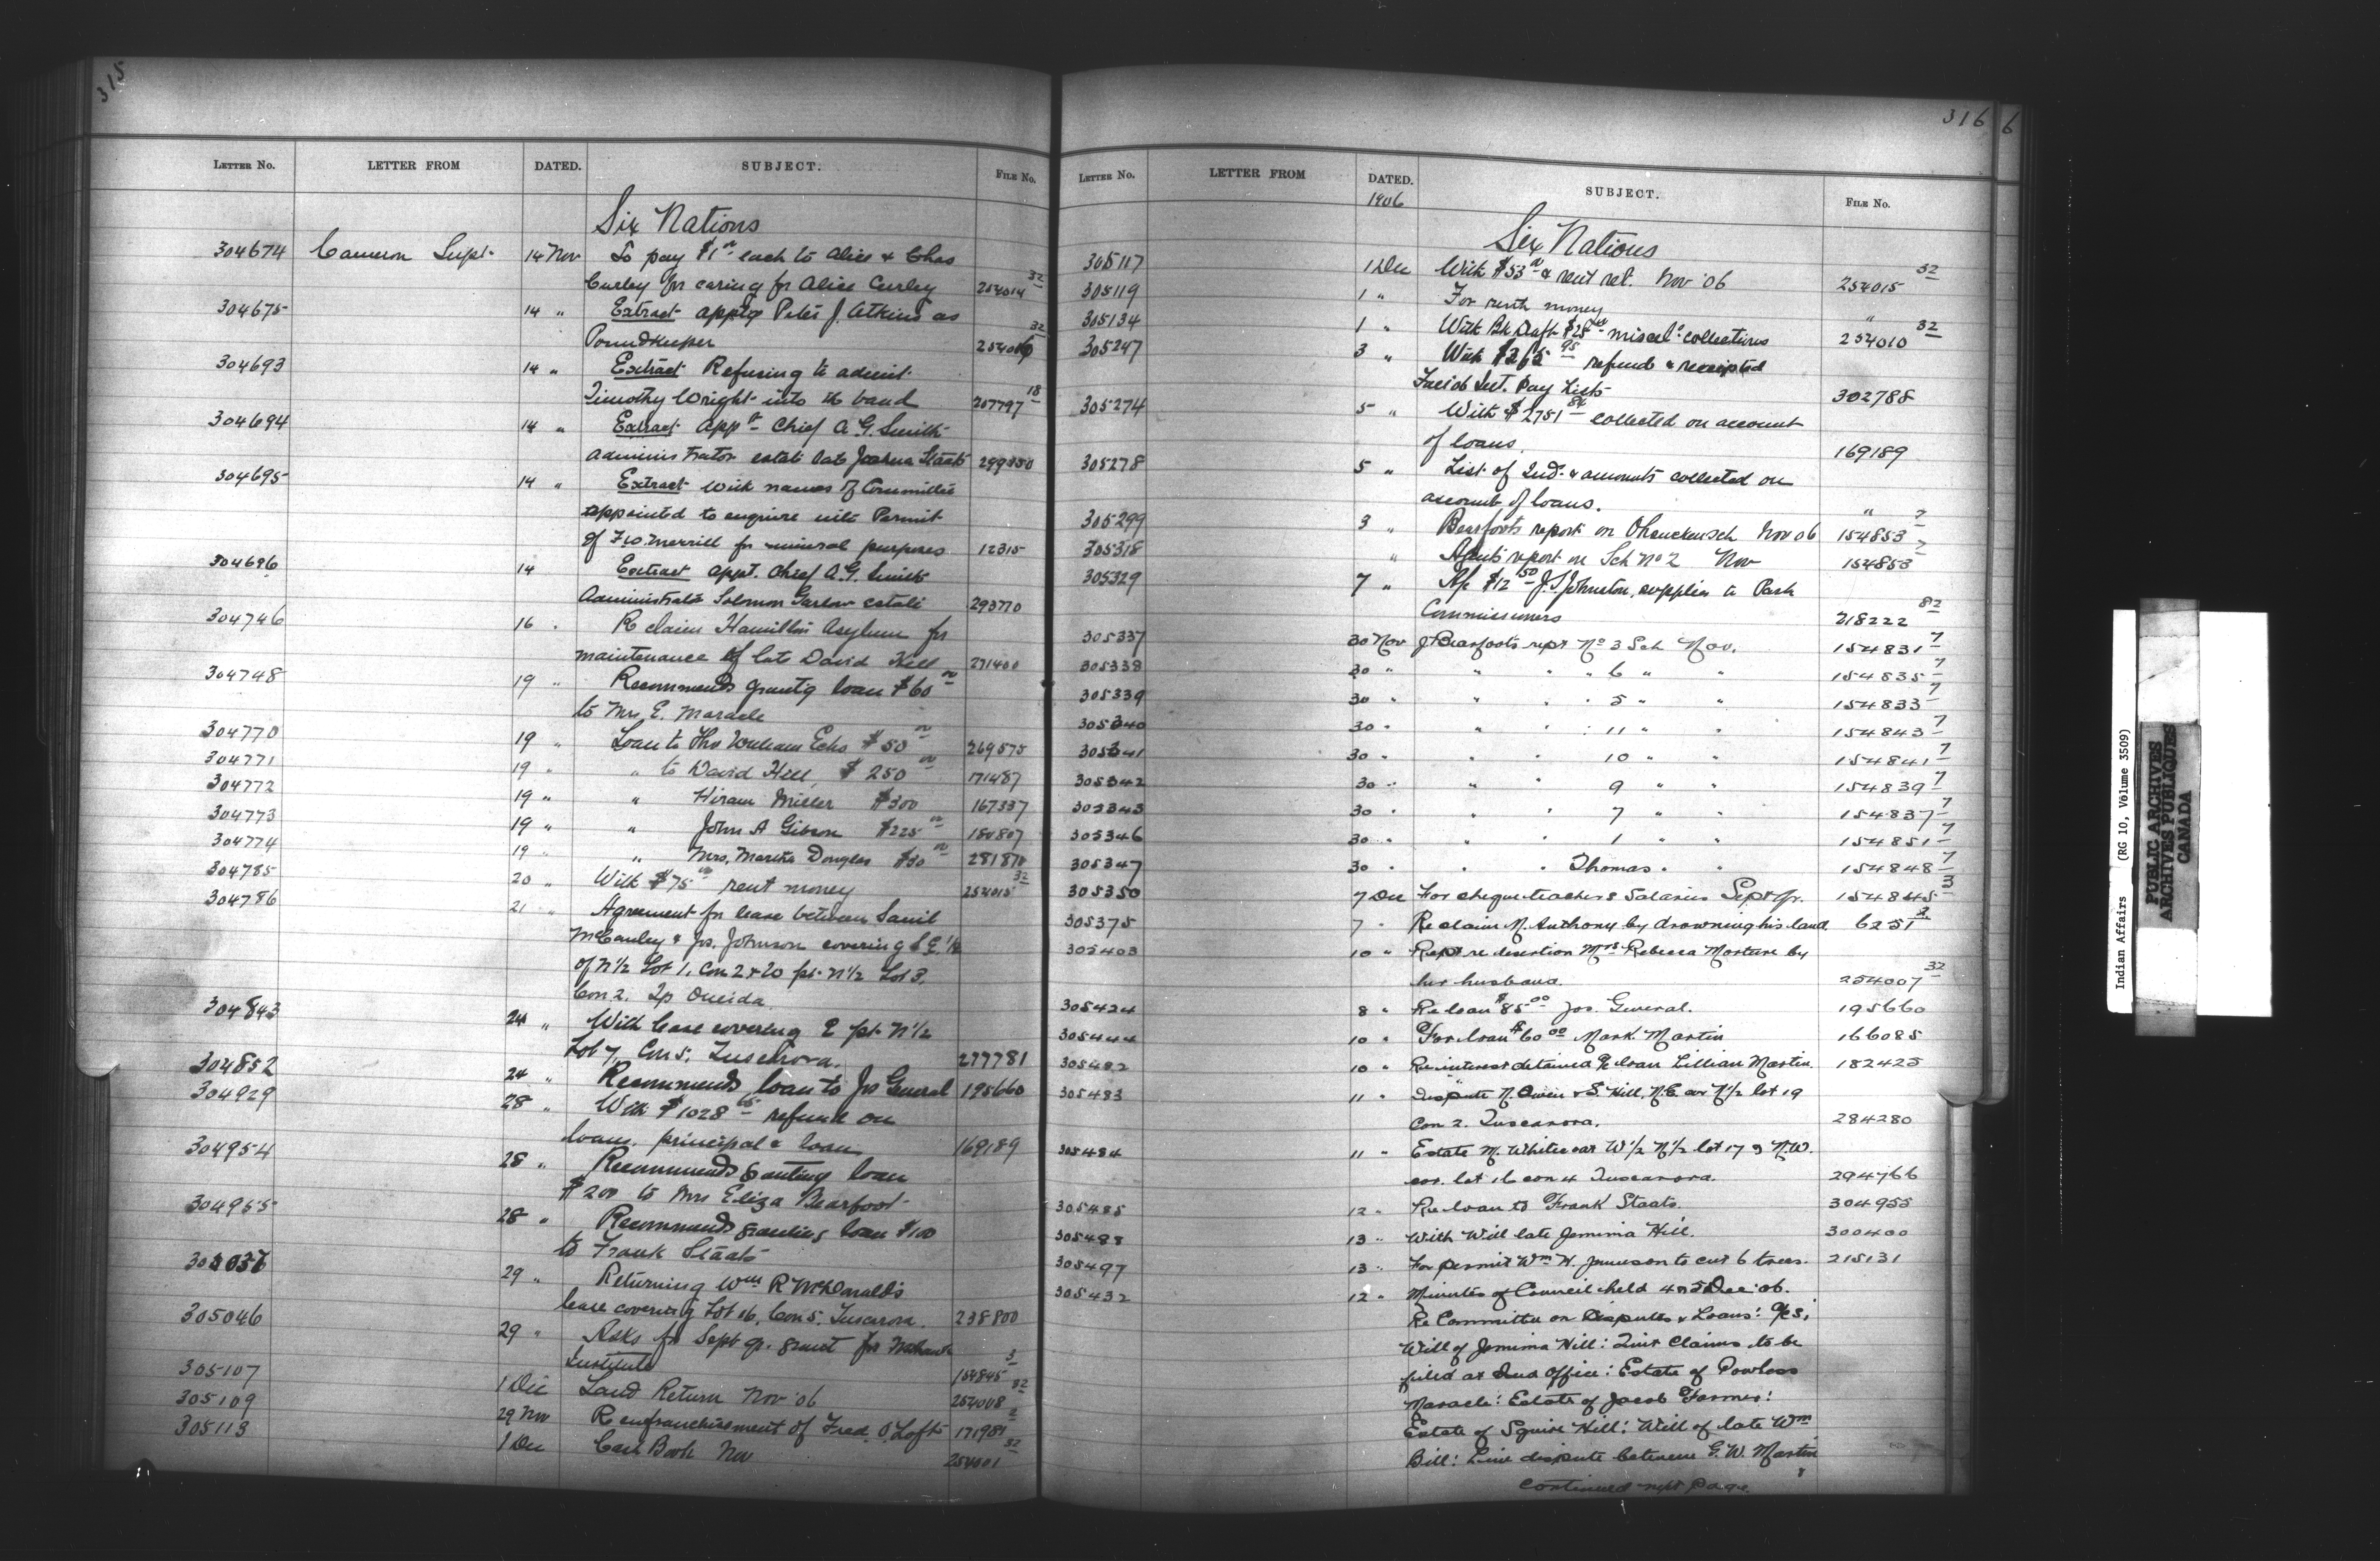 315
LETTER NO. LETTER FROM DATED. SUBJECT. FILE NO.
Six Nations
304674 Cameron Supt. 14 Nov To pay $1.00 each to Alice & Chas
Curley for caring for Alice Curley 254014 32
304675 14 " Extract apptg Peter J. Atkins as
Poundkeeper 32
304693 14 " Extract Refusing to admit
Timothy Wright into the band 257797 18
304694 14 " Extract appt Chief A. G. Smith
Administrator estate late Joshua Staats 299350
304695 14 " Extract with names of Committee
appointed to enquire into Permit
of Merrill for mineral purposes 12315
304696 14 Extract appt. Chief A. G. Smith
Administrator Solomon Garlow estate 293770
304746 16 " Re claim Hamilton Asylum for
maintenance of late David Hill 271400
304748 19 " Recommends grantg loan $60.00
to Mrs E. Maracle
304770 19 " Loan to Thos William Echo $50.00 269575
304771 19 " " to David Hill $250.00 171487
304772 19 " " Hiram Miller $300 167337
304773 19 " " John A Gibson $225.00 180807
304774 19 " " Mrs, Martha Douglas $30.00 281870
304785 20 " With $75.00 rent money 254015 32
304786 21 " Agreement for lease between Saml
McCauley & Jos. Johnson covering S.E. 1/2
of N 1/2 Lot 1, Con 2 & 20 pt. N 1/2 Lot 3,
Con 2. Tp Oneida
304843 24 " With lease covering E pt. N 1/2
Lot 7, Con 5, Tuscarora. 277781
304852 24 " Recommends loan to Jos General 195660
304929 28 " With $1028 refund on
loans, principal & loan 169189
304954 28 " Recommends granting loan
$200 to Mrs Eliza Bearfoot
304955 28 " Recommends granting loan $100
to Frank Staats
29 " Returning Wm R McDonald's
lease covering Lot 16, Con 5, Tuscarora. 238800
305046 29 " Asks for Sept qr. grant for Mohawk
Institute 154845 3
305107 1 Dec Land Return Nov '06 254008 32
305109 29 Nov Re enfranchisement of Fred. O. Loft 171981 2
305113 1 Dec Cash Book Nov 254001 32
316 6
LETTER NO. LETTER FROM DATED. SUBJECT. FILE NO.
1906
Six Nations
305117 1 Dec With $53.00 & rent ret. Nov '06 254015 32
305119 1 " For rent money "
305134 1 " With Bk Draft $25 miscel. collections 254010 32
305247 3 " With $265.95 refund & receipted
Int. Pay Lists 302788
305274 5 " With $2751.84 collected on account
of loans. 169189
305278 5 " List of Inds. & amounts collected on
account of loans. "
305299 3 " Bearfoots report on Sch Nov 06 154853 7
305318 " Agents report on Sch No 2 Nov 154853 7
305329 7 " A/c $12.50 J. S. Johnston, supplies to Park
Commissioners 218222 82
305337 30 Nov J Bearfoots rept No 3 Sch Nov. 154831 7
305338 30 " " " 6 " " 154835 7
305339 30 " " " 5 " " 154833 7
305340 30 " " " 11 " " 154843 7
305341 30 " " " 10 " " 154841 7
305342 30 " " " 9 " " 154839 7
305343 30 " " " 7 " " 154837 7
305346 30 " " " 1 " " 154851 7
305347 30 " " " Thomas " " 154848 7
305350 7 Dec For cheque teachers Salaries Sept qr. 154845 3
305375 7 " Re claim N. Anthony by drowning his land 6251 2
305403 10 " Rept re desertion Mrs Rebecca Morture by
her husband. 254007 32
305424 8 " Re loan $85.00 Jos. General. 195660
305444 10 " For loan $60.00 Mark Martin 166085
305482 10 " Re interest detained re loan Lillian Martin. 182425
305483 11 " Dispute N. Owen & S. Hill, N.E. cor N 1/2 lot 19
Con 2. Tuscarora. 284280
305484 11 " Estate M. Whitecoat W 1/2 N 1/2 lot 17 & N.W.
cor. lot 16 con 4 Tuscarora. 294766
305485 12 " Re loan to Frank Staats. 304955
305493 13 " With Will late Jemima Hill. 300400
305497 13 " For permit Wm H. Jamieson to cut 6 trees. 215131
305432 12 " Minutes of Council held 4 & 5 Dec '06.
Re Committee on Disputes & Loans:
Will of Jemima Hill: Quit Claims to be
filed at Ind Office: Estate of Powless
Maracle: Estate of Jacob Farmer:
Estate of Squire Hill: Will of late Wm
Bill: Line dispute between G. W. Martin
continued next page.
Indian Affairs (RG 10, Volume 3509)
PUBLIC ARCHIVES
ARCHIVES PUBLIQUES
CANADA